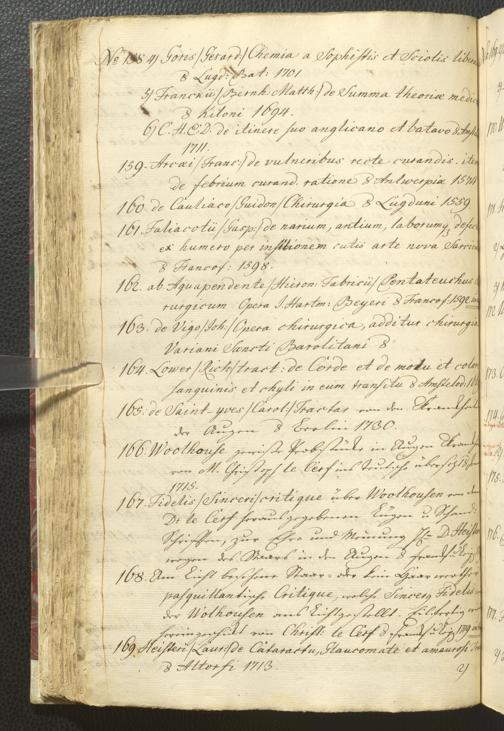 No 158 4) Goris/Gerard/Chemia a Sophistis et Sciolis liber
8 Lugd: Bat: 1701
5) Franckii/Bernh: Matth:/de Summa theoriæ medic
8 Kiloni 1694.
6) C. H. E. D. de itinere suo anglicano et batavo 8
1711.
159. Arcæi/Franc:/de vulneribus recte curandis. item
de febrium curand. ratione 8 Antwerpiæ 1574
160. de Cauliaco/Guidon/Chirurgia 8 Lugduni 1559
161. Taliacotii/Gasp:/de narium, aurium, laborumq defec
ex humero per insitionem cutis arte nova Sarcien
8 Francof: 1598.
162. ab Aquapendente/Hieron: Fabricii/Pentateuchus
rurgicum Opera J. Hartm: Beyeri 8 Francof. 1592
163. de Vigo/Joh:/Opera chirurgica, additur chirurgia
Variani Sancti Barolitani 8
164. Lower/Rich:/tract: de Corde et de motu et color
sanguinis et chyli in eum transitu 8 Amstelod:
165. de Saint-yves/Carol:/Tractat von den Krankheiten
der Augen 8 Berlin 1730.
166. Woolhouse Probstücke in Augen
von M. Christoph le Cerf ins teutsche übersetzt
1715.
167. Fidelis/Sinceri/critique über Woolhousen von dem
D: le Cerf herausgegebenen Augen u Schand-
Schriften, zur Ehre und Meinung D: Heister
wegen des Staars in den Augen 8
168. Am Licht besehener Staar: der kein
pasquillantische Critique, welche Sincery Fidelis
der Wolhousen ans Licht gestellt.
von Christ: le Cerf 8
169. Heisteri/Laur:/de Cataracta, Glaucomate et amaurosi
8 Altorfi 1713.
2)